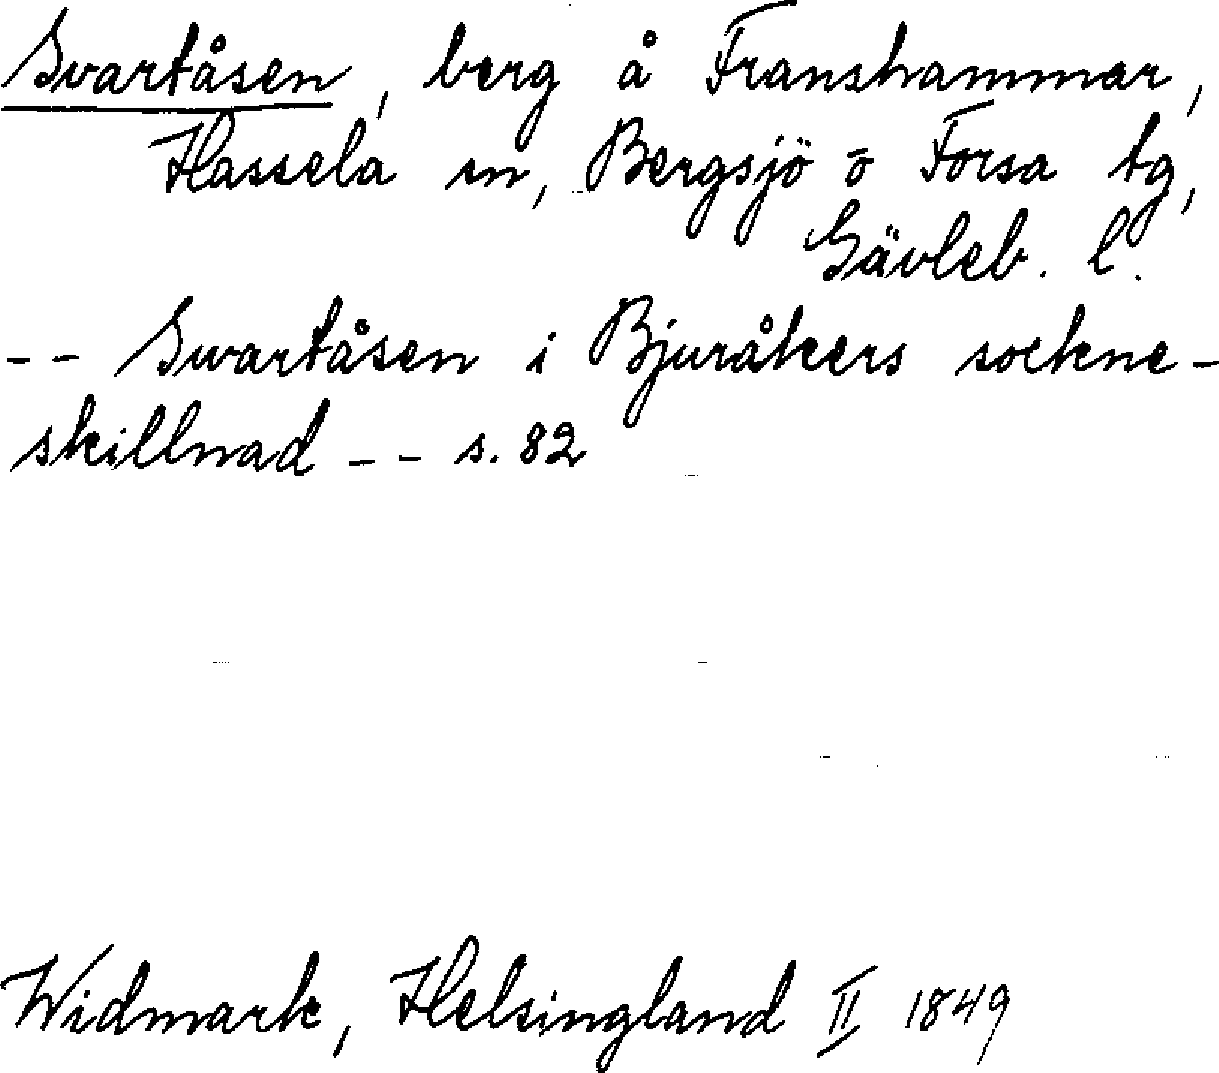 Svartåsen, berg å Franshammar,
Hassela sn, Bergsjö o Forsa tg,
Gävleb. l.
-- Swartåsen i Bjuråkers sockne-
skillnad -- s. 82
Widmark, Helsingland II 1849